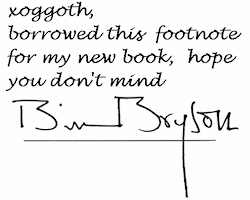 xoggoth,
borrowed this footnote
for my new book, hope
you don't mind
Bill Bryson